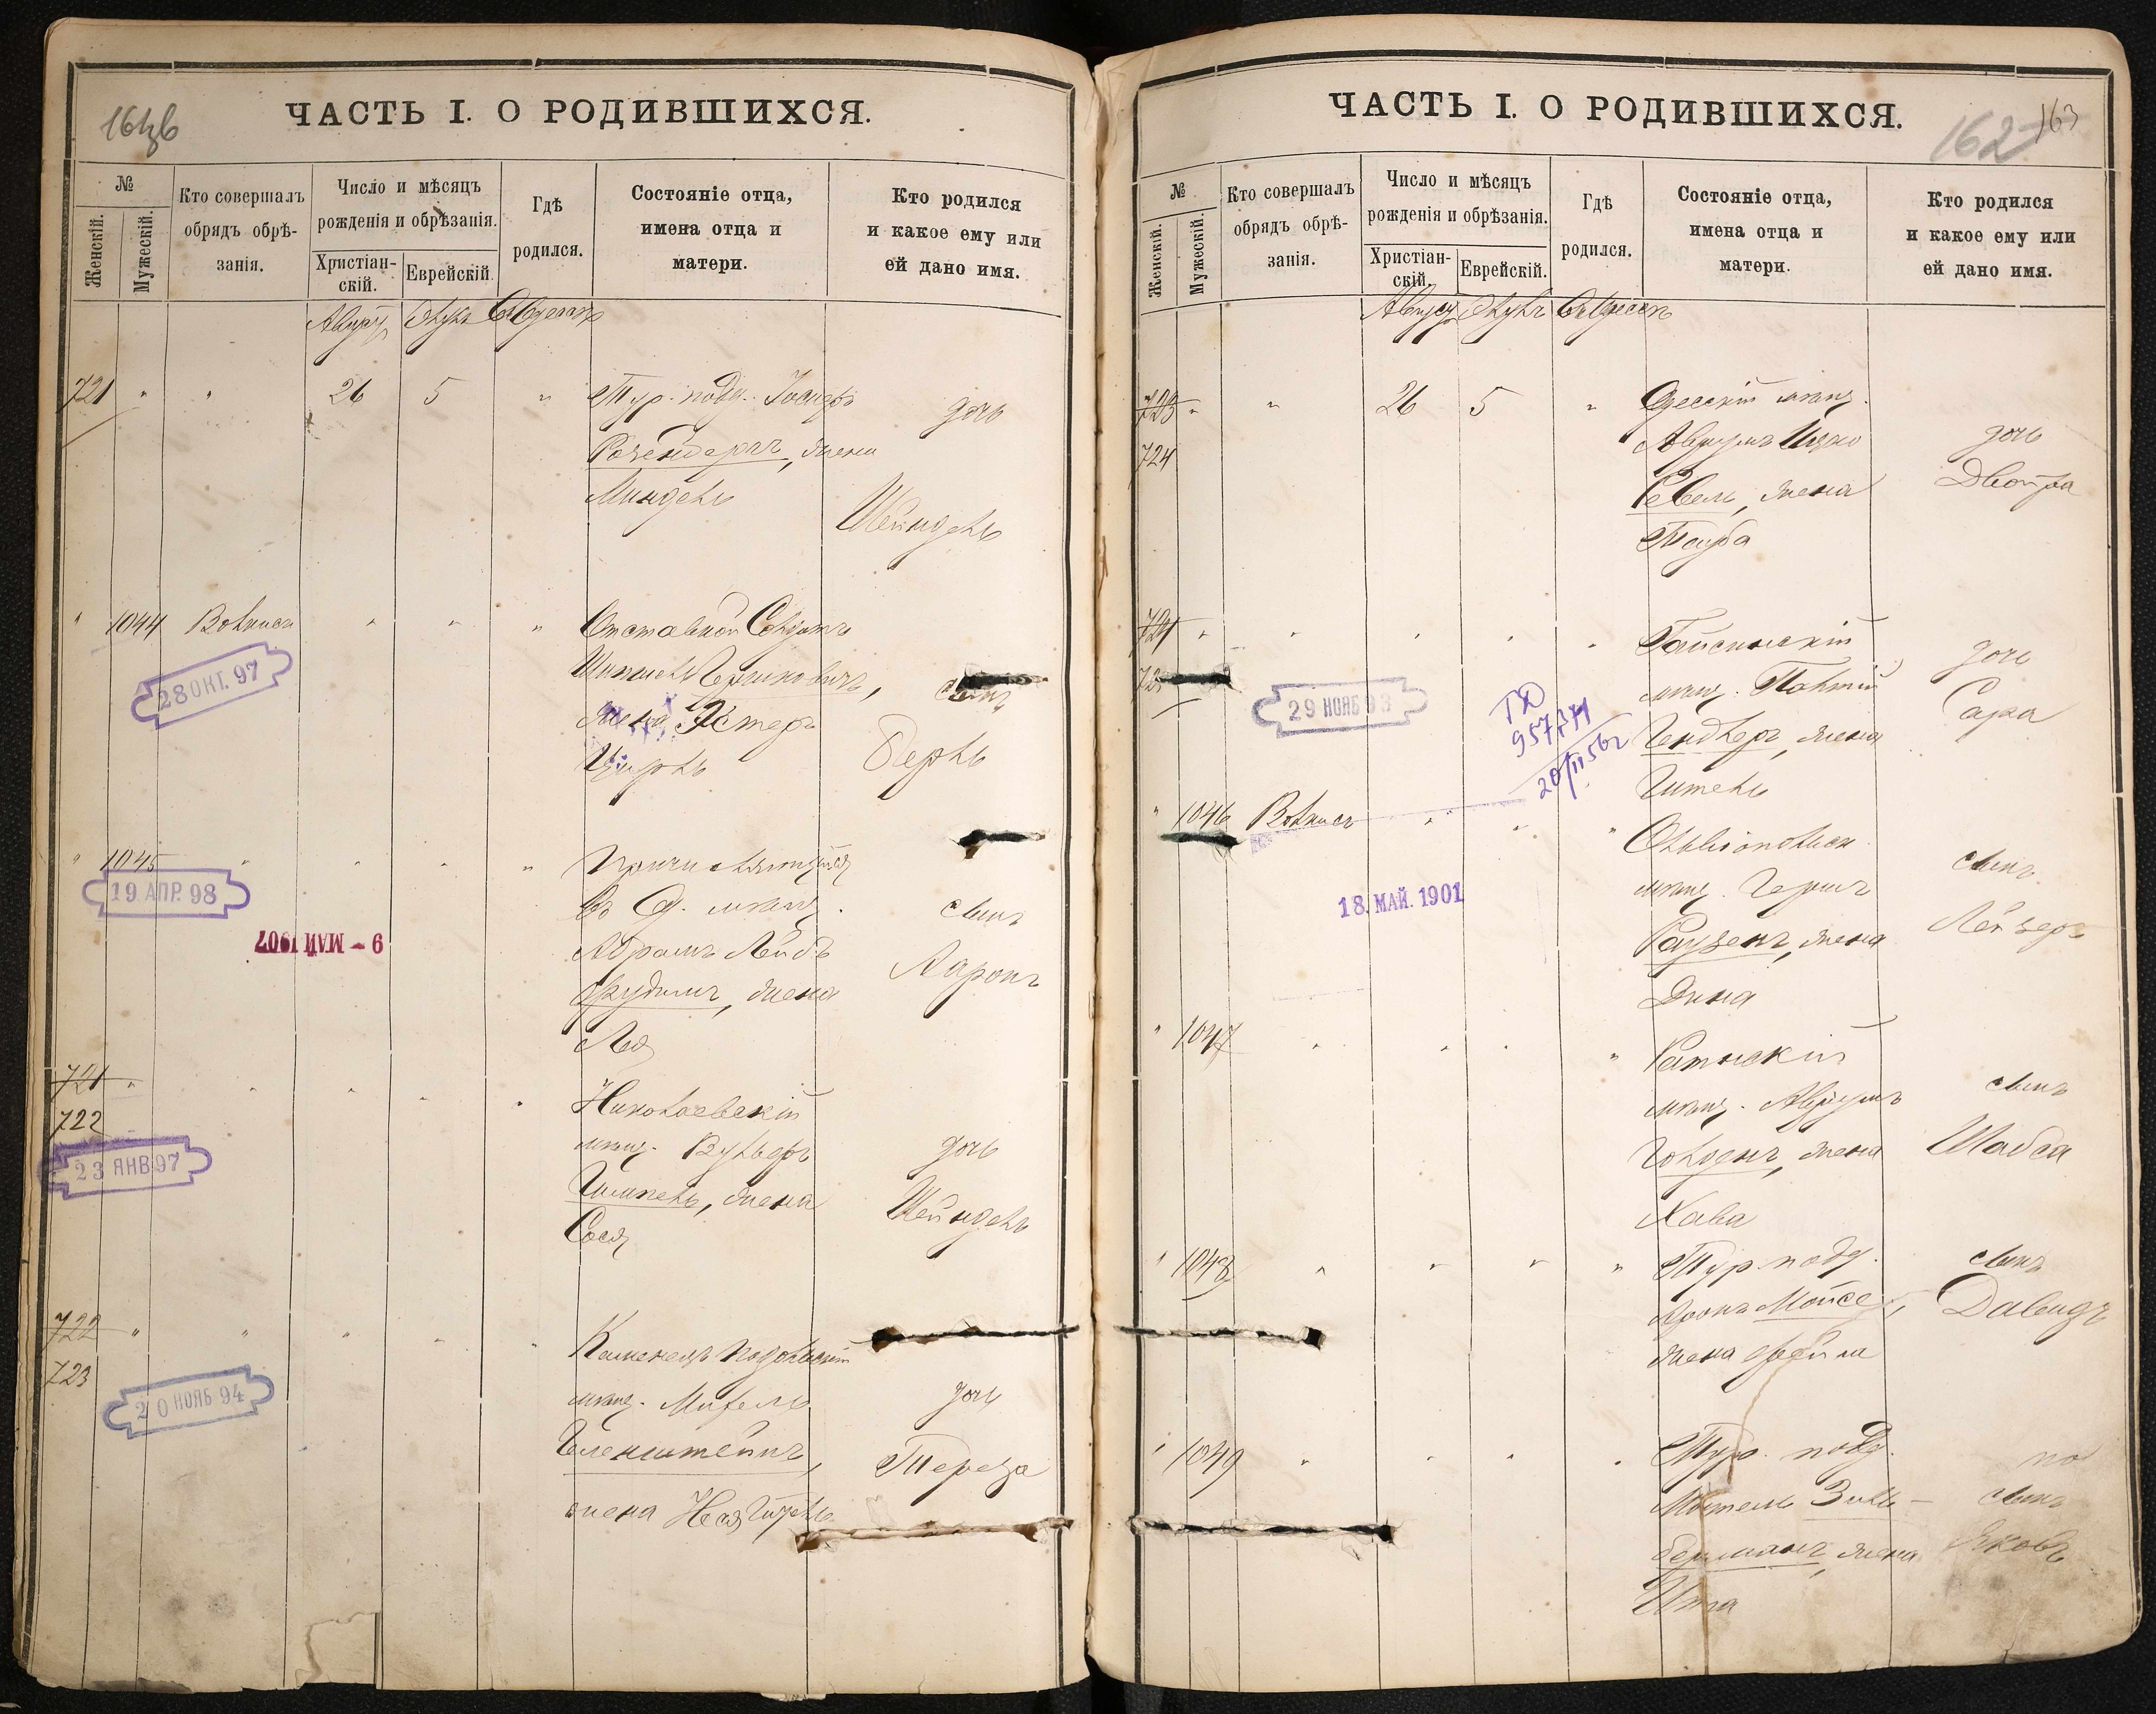 161 зв
ЧАСТЬ I. О РОДИВШИХСЯ.
№
Женскій.
Мужескій.
Кто совершалъ
обрядъ обрѣ-
занія.
Число и мѣсяцъ
рожденія и обрѣзанія.
Христіан-
скій.
Еврейскій.
Гдѣ
родился.
Состояніе отца,
имена отца и
матери.
Кто родился
и какое ему или
ей дано имя.
Августъ Элулъ Въ Одессѣ
721 " " 26 5 " Тур. подд. Іосифъ
дочь
Розенбергъ, жена
Миндель
Шейндель
" 1044 Вольнисъ " " " Отставной Солдатъ
28 ОКТ. 97
Гершковичъ,
сынъ
жена Эстеръ
Цирль
Беръ
" 1045 " " " "
19 АПР. 98
въ О. мѣщ.
сынъ
9 - МАЙ 1907
Абрамъ Лейбъ
Ааронъ
Фудимъ, жена
Лея
721 " " " " " Николаевскій
722
мѣщ. Вульфъ
дочь
23 ЯНВ 97
Гимпель, жена
Шейндель
Сося
722 " " " " Каменецъ Подольскій
723
мѣщ. Михель
дочь
20 НОЯБ 94
Геленштейнъ,
Тереза
жена
162 163
ЧАСТЬ I. О РОДИВШИХСЯ.
№
Женскій.
Мужескій.
Кто совершалъ
обрядъ обрѣ-
занія.
Число и мѣсяцъ
рожденія и обрѣзанія.
Христіан-
скій.
Еврейскій.
Гдѣ
родился.
Состояніе отца,
имена отца и
матери.
Кто родился
и какое ему или
ей дано имя.
Августъ Элулъ Въ Одессѣ
723 " " 26 5 " Одесскій мѣщ.
724
Аврумъ Ицко
дочь
Двойра
Ревель, жена
Тауба
724 " " " " " Гайсинскій
дочь
29 НОЯБ 93
мѣщ.
Сара
жена
Гитель
20/II 56г
" 1046 Вольнисъ " " " Ольвіопольск
мѣщ. Гершъ
сынъ
18. МАЙ. 1901
Раузенъ, жена
Лейзеръ
Дина
" 1047 " " " " Ратнскій
мѣщ. Аврумъ
сынъ
Гольденъ, жена
Шабса
Хава
" 1048 " " " " Тур. подд.
сынъ
Аронъ Мойсей,
Давидъ
жена Фейга
" 1049 " " " " Тур. подд.
Мотель Зиль-
сынъ
берманъ, жена
Яковъ
Ита